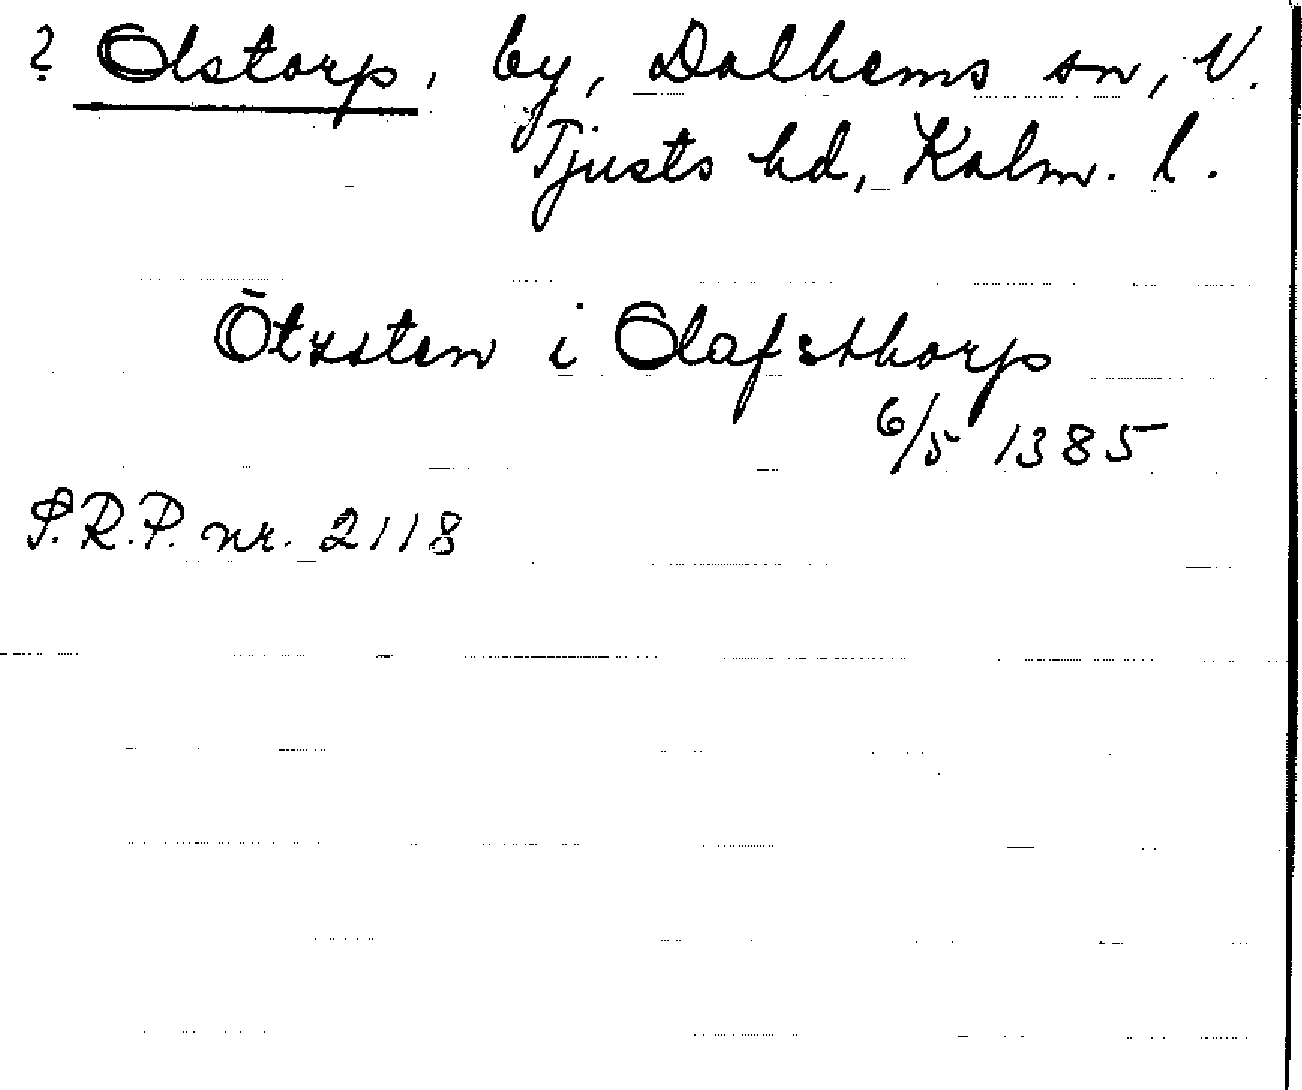 ? Olstorp, by, Dalhems sn, N.
Tjusts hd, Kalm. l.
Ötzsten i Olafsthorp
6/5 1385
S.R.P. nr. 2118